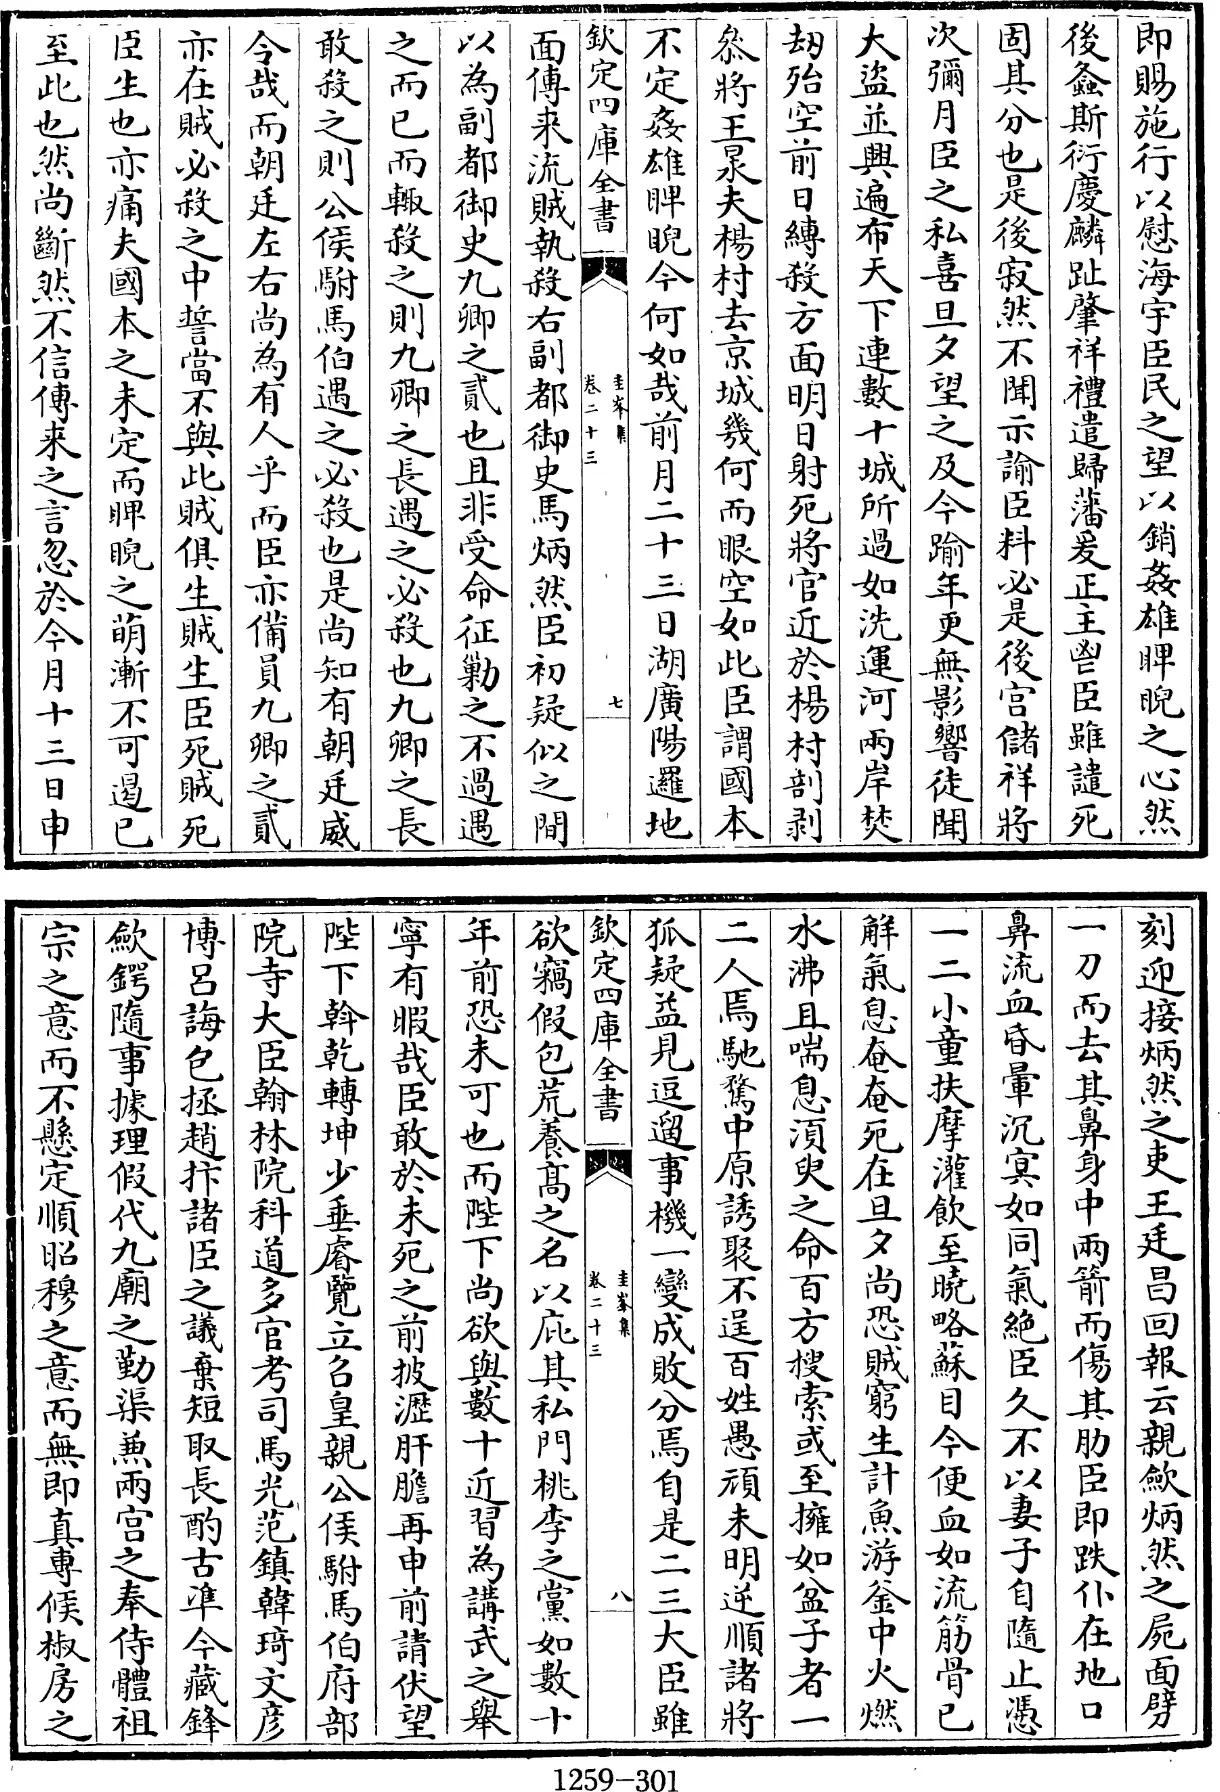 即賜施行以慰海宇臣民之望以銷姦雄睥睨之心然
後螽斯衍慶麟趾肇祥禮遣歸藩爰正主鬯臣雖譴死
固其分也是後寂然不聞示諭臣料必是後宫儲祥將
次彌月臣之私喜旦夕望之及今踰年更無影響徒聞
大盜並興遍布天下連數十城所過如洗運河兩岸焚
刼殆空前日縛殺方面明日射死將官近於楊村剖剥
叅將王杲夫楊村去京城幾何而眼空如此臣謂國本
不定姦雄睥睨今何如哉前月二十三日湖廣陽邏地
欽定四庫全書
圭峯集
卷二十三
七
面傳来流賊執殺右副都御史馬炳然臣初疑似之間
以為副都御史九卿之貳也且非受命征勦之不過遇
之而已而輙殺之則九卿之長遇之必殺也九卿之長
敢殺之則公侯駙馬伯遇之必殺也是尚知有朝廷威
令哉而朝廷左右尚為有人乎而臣亦備員九卿之貳
亦在賊必殺之中誓當不與此賊俱生賊生臣死賊死
臣生也亦痛夫國本之未定而睥睨之萌漸不可遏已
至此也然尚斷然不信傳來之言忽於今月十三日申
刻迎接炳然之吏王廷昌回報云親歛炳然之屍面劈
一刀而去其鼻身中兩箭而傷其肋臣即跌仆在地口
鼻流血昏暈沉㝠如同氣絶臣久不以妻子自隨止憑
一二小童扶摩灌飲至曉略蘇目今便血如流筋骨已
解氣息奄奄死在旦夕尚恐賊窮生計魚游釜中火燃
水沸且喘息湏臾之命百方搜索或至擁如盆子者一
二人焉馳騖中原誘聚不逞百姓愚頑未明逆順諸將
狐疑益見逗遛事機一變成敗分焉自是二三大臣雖
欽定四庫全書
圭峯集
卷二十三
八
欲竊假包荒養髙之名以庇其私門桃李之黨如數十
年前恐未可也而陛下尚欲與數十近習為講武之舉
寧有暇哉臣敢於未死之前披瀝肝膽再申前請伏望
陛下斡乾轉坤少垂睿覽立召皇親公侯駙馬伯府部
院寺大臣翰林院科道多官考司馬光范鎮韓琦文彦
博吕誨包拯趙抃諸臣之議棄短取長酌古凖今藏鋒
歛鍔隨事據理假代九廟之勤渠兼兩宫之奉侍體祖
宗之意而不懸定順昭穆之意而無即真專候椒房之
1259-301